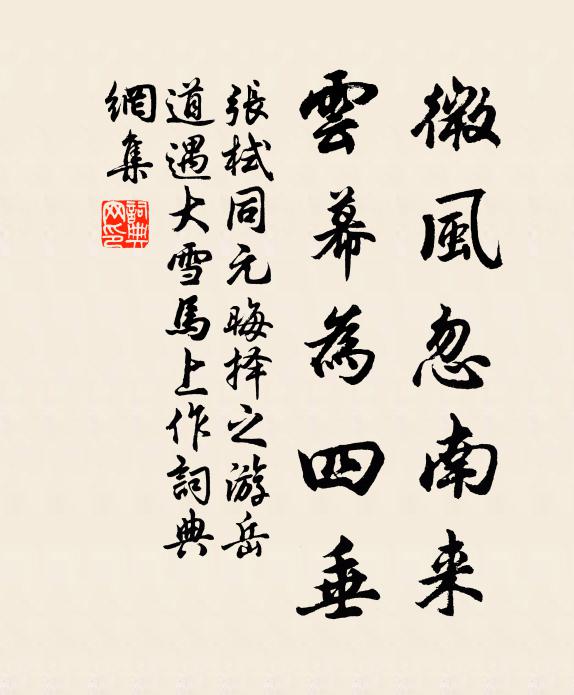 微風忽南来
雲幕為四垂
張栻同元晦择之游岳
道遇大雪馬上作詞典
網集
詞典
网印